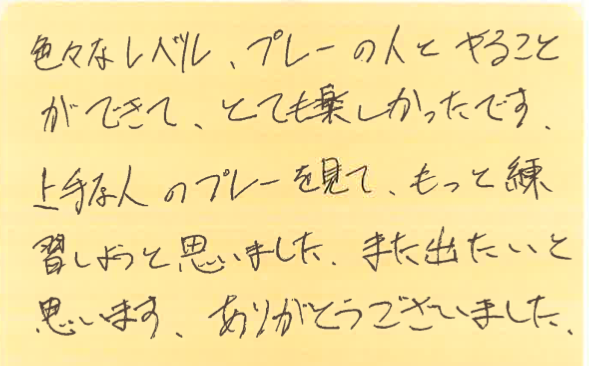 色々なレベル、プレーの人とやること
ができて、とても楽しかったです、
上手な人のプレーを見て、もっと練
習しようと思いました、また出たいと
思います、ありがとうございました、